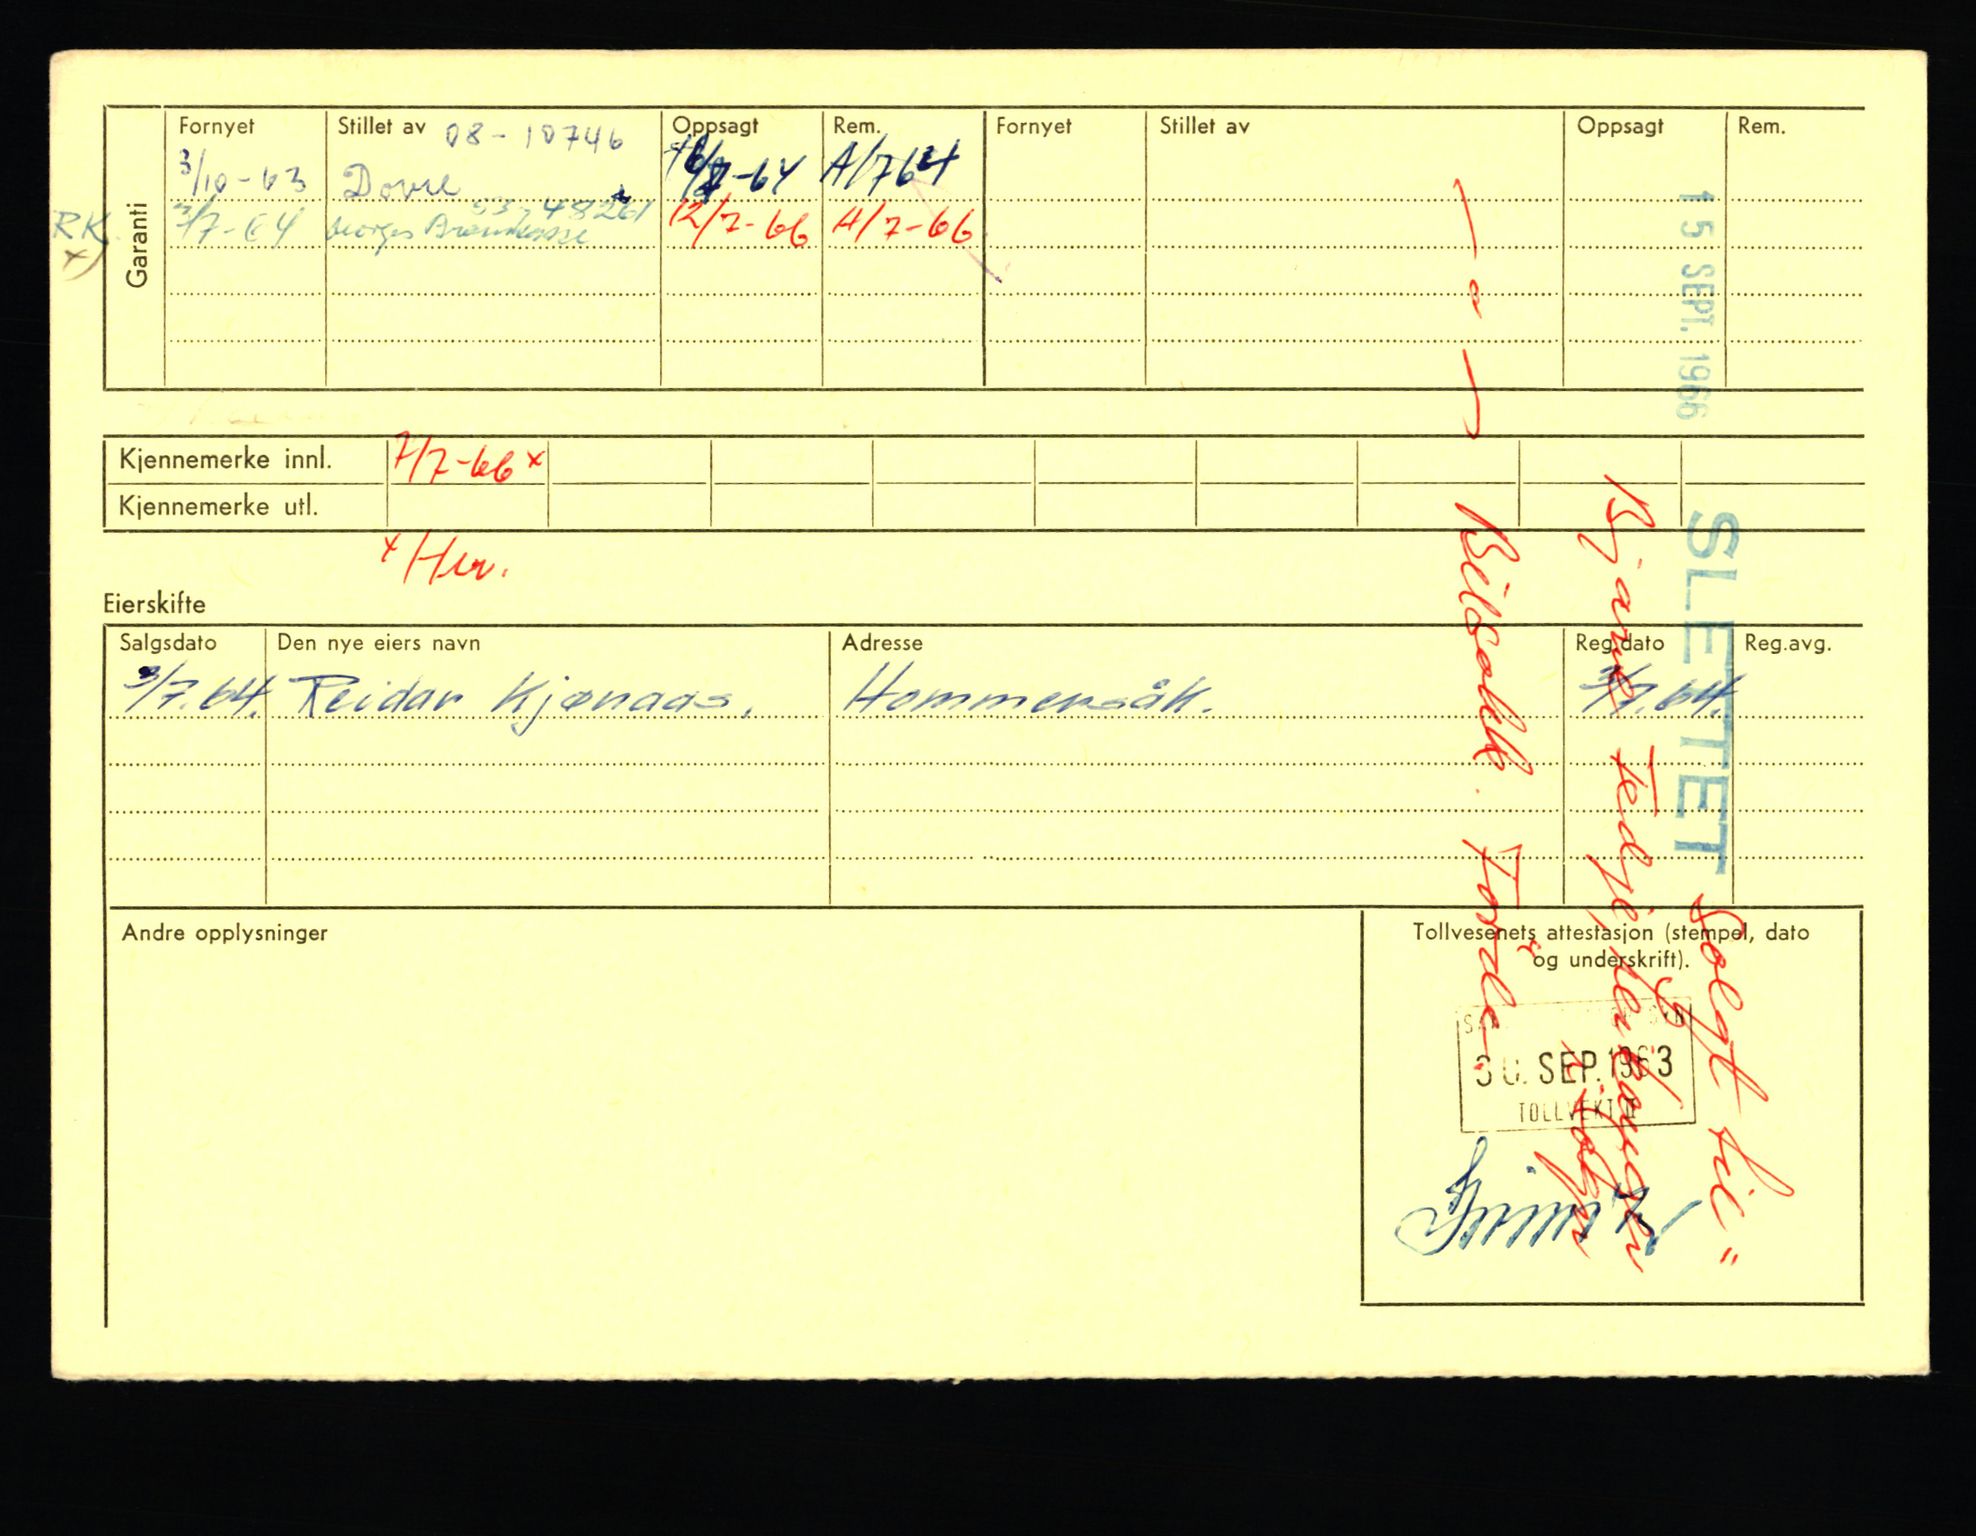 Garanti
Fornyet Stillet av 08-10746 Oppsagt Rem. Fornyet Stillet av Oppsagt Rem.
3/10-63 Dovre -64 A/764
RK 3/7-64 53-48261 12/7-66 A/7-66
x)
Kjennemerke innl. 7/7-66 x
Kjennemerke utl.
x/Her.
Eierskifte
Salgsdato Den nye eiers navn Adresse Reg.dato Reg.avg.
3/7.64. Reidar Kjønaas. Hommersåk. 3/7.64.
Andre opplysninger
Tollvesenets attestasjon (stempel, dato
og underskrift).
30. SEP. 1963
TOLLVEKT II
15 SEPT. 1966
SLETTET
Solgt til "
Bjarne